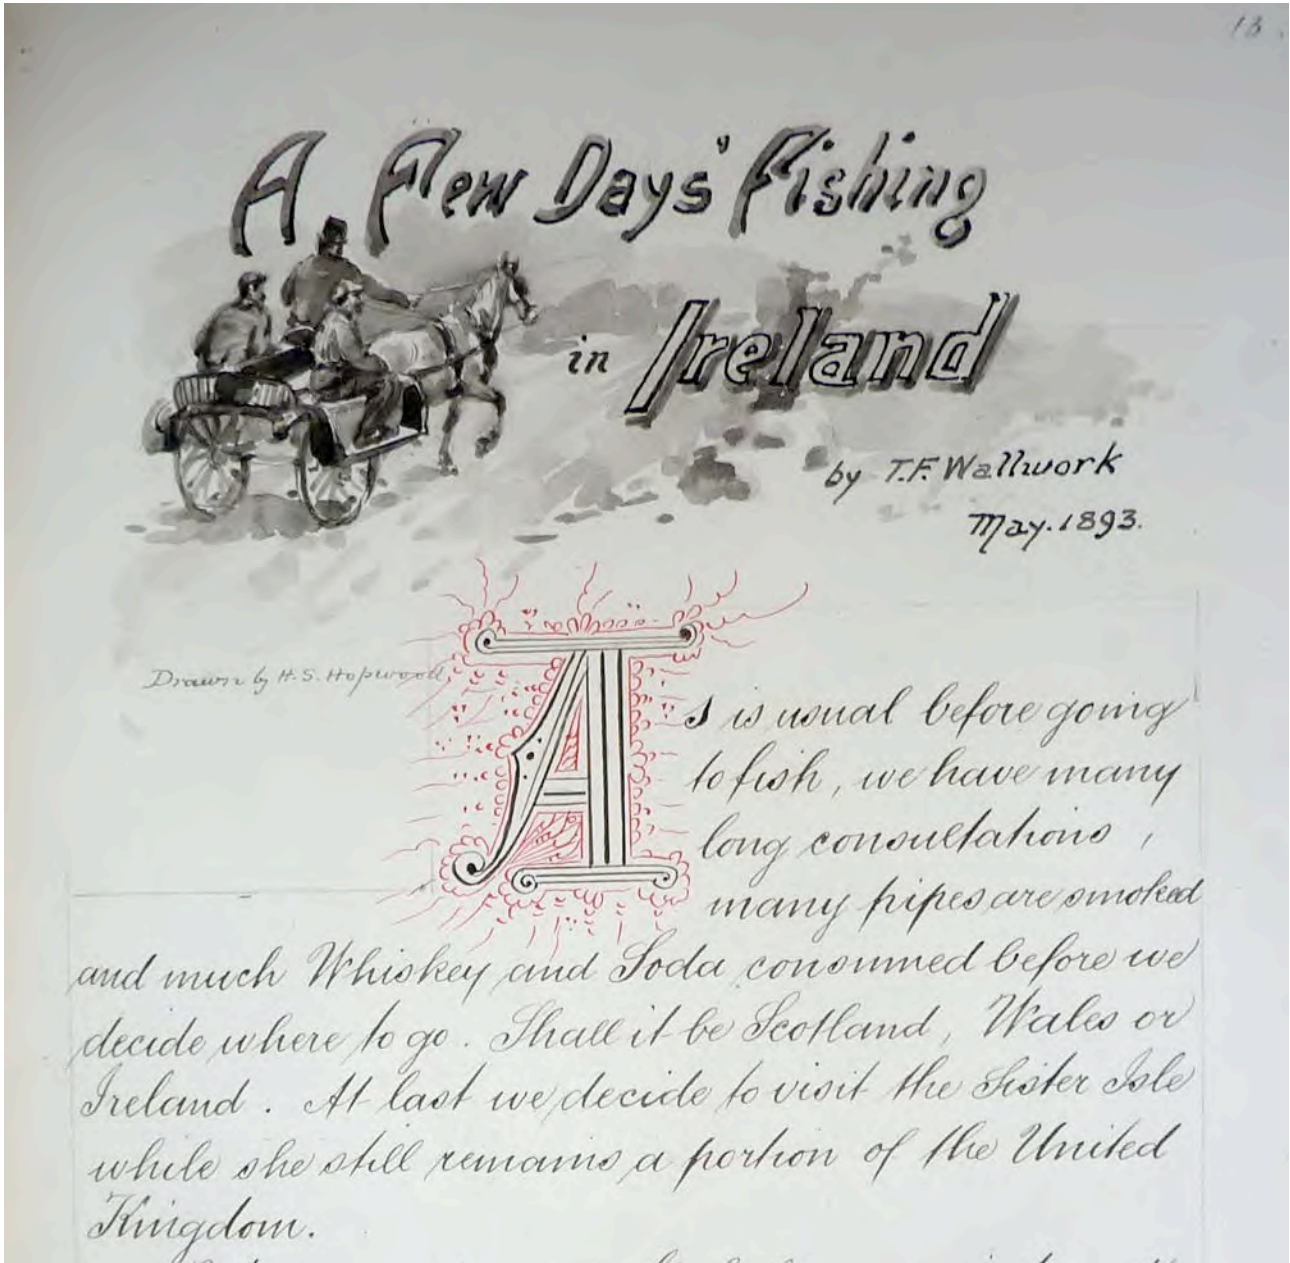 13.
A Few Days' Fishing
in Ireland
by T.F. Wallwork
May. 1893.
Drawn by H. S. Hopwood,
As is usual before going
to fish, we have many
long consultations,
many pipes are smoked
and much Whiskey and Soda consumed before we
decide where to go. Shall it be Scotland, Wales or
Ireland. At last we decide to visit the Sister Isle
while she still remains a portion of the United
Kingdom.